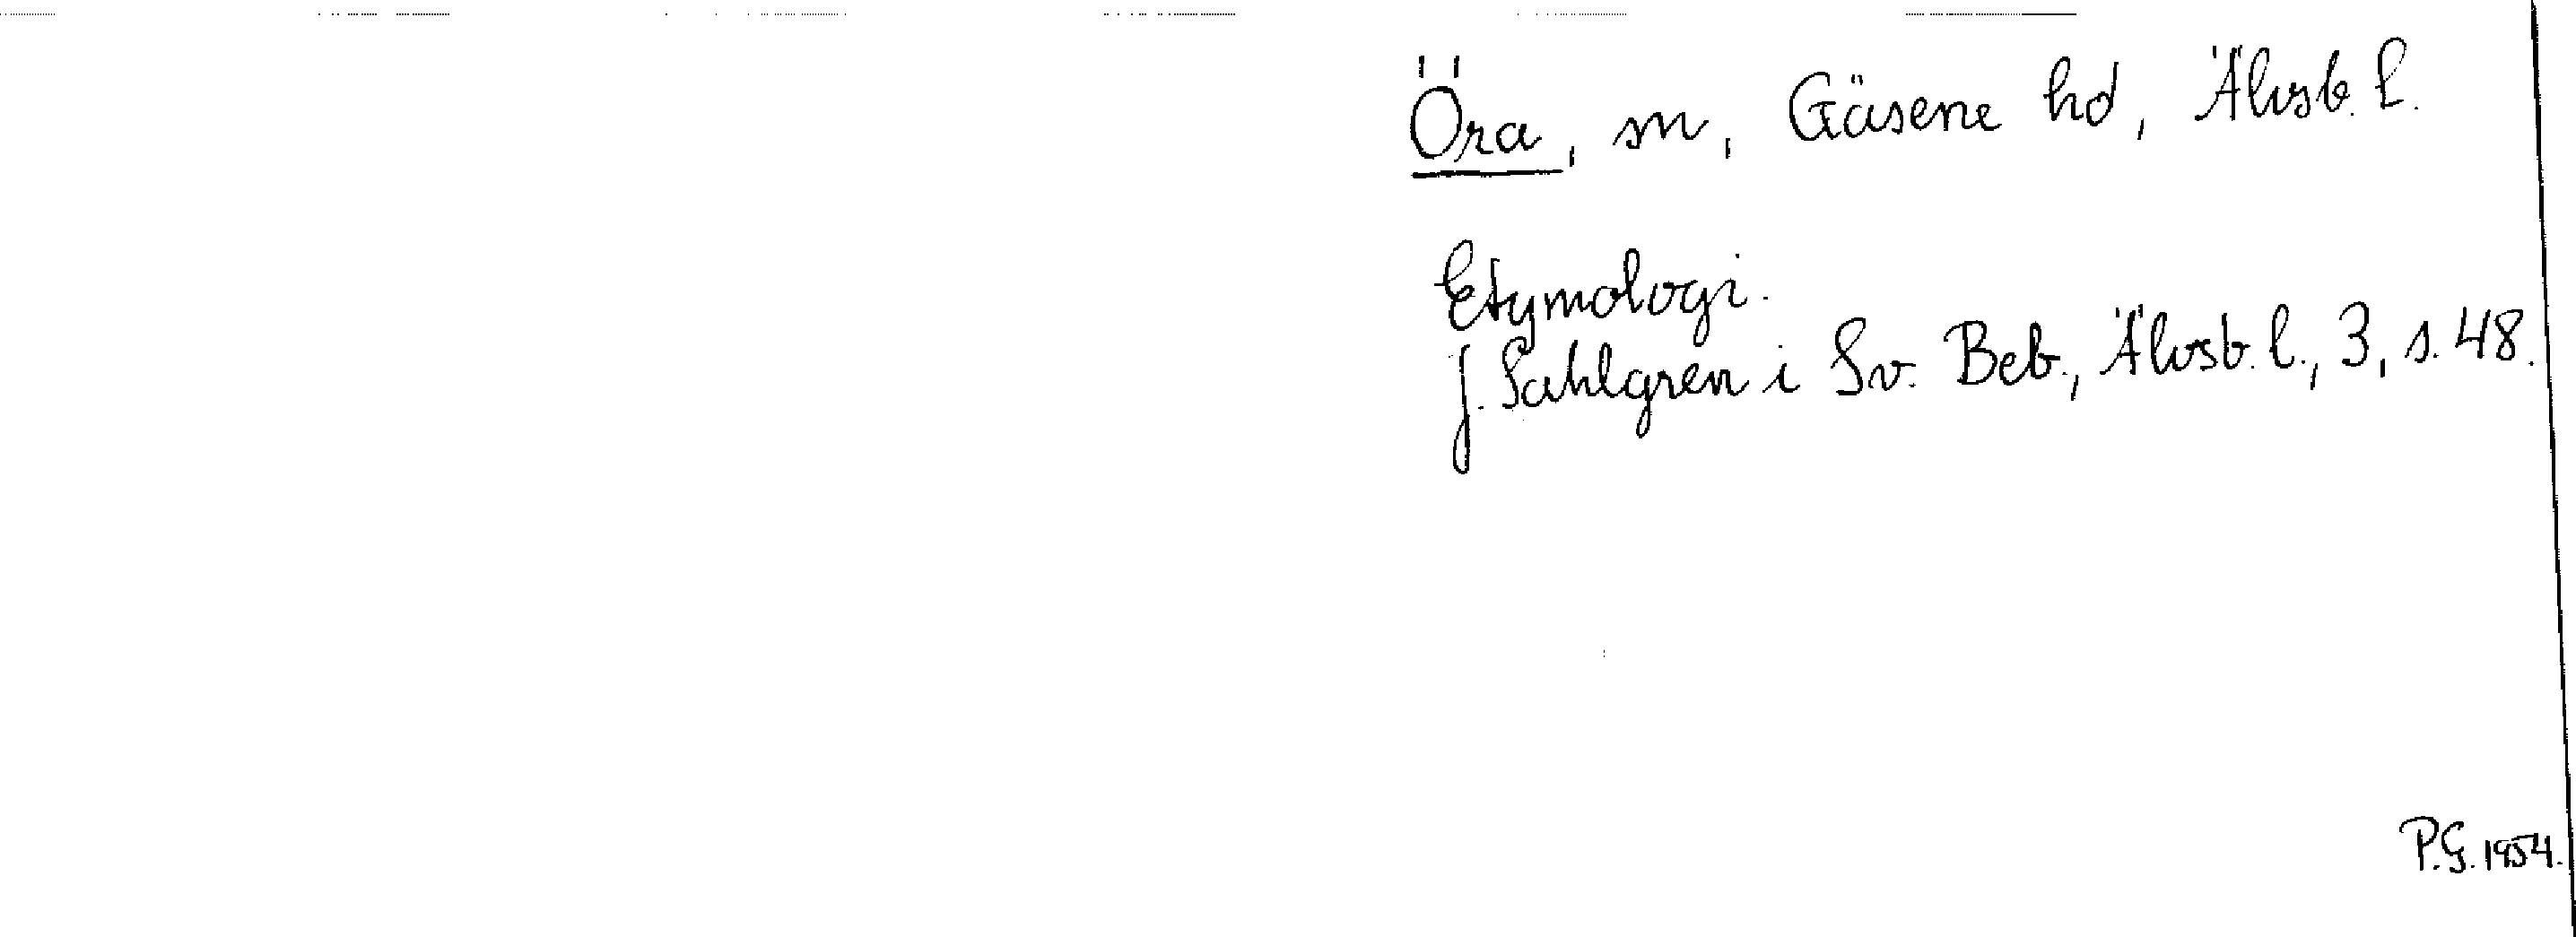 Öra, sn, Gäsene hd, Älvsb. l.
Etymologi.
J. Sahlgren i Sv. Beb., Älvsb. l., 3, s. 48.
P.G. 1954.